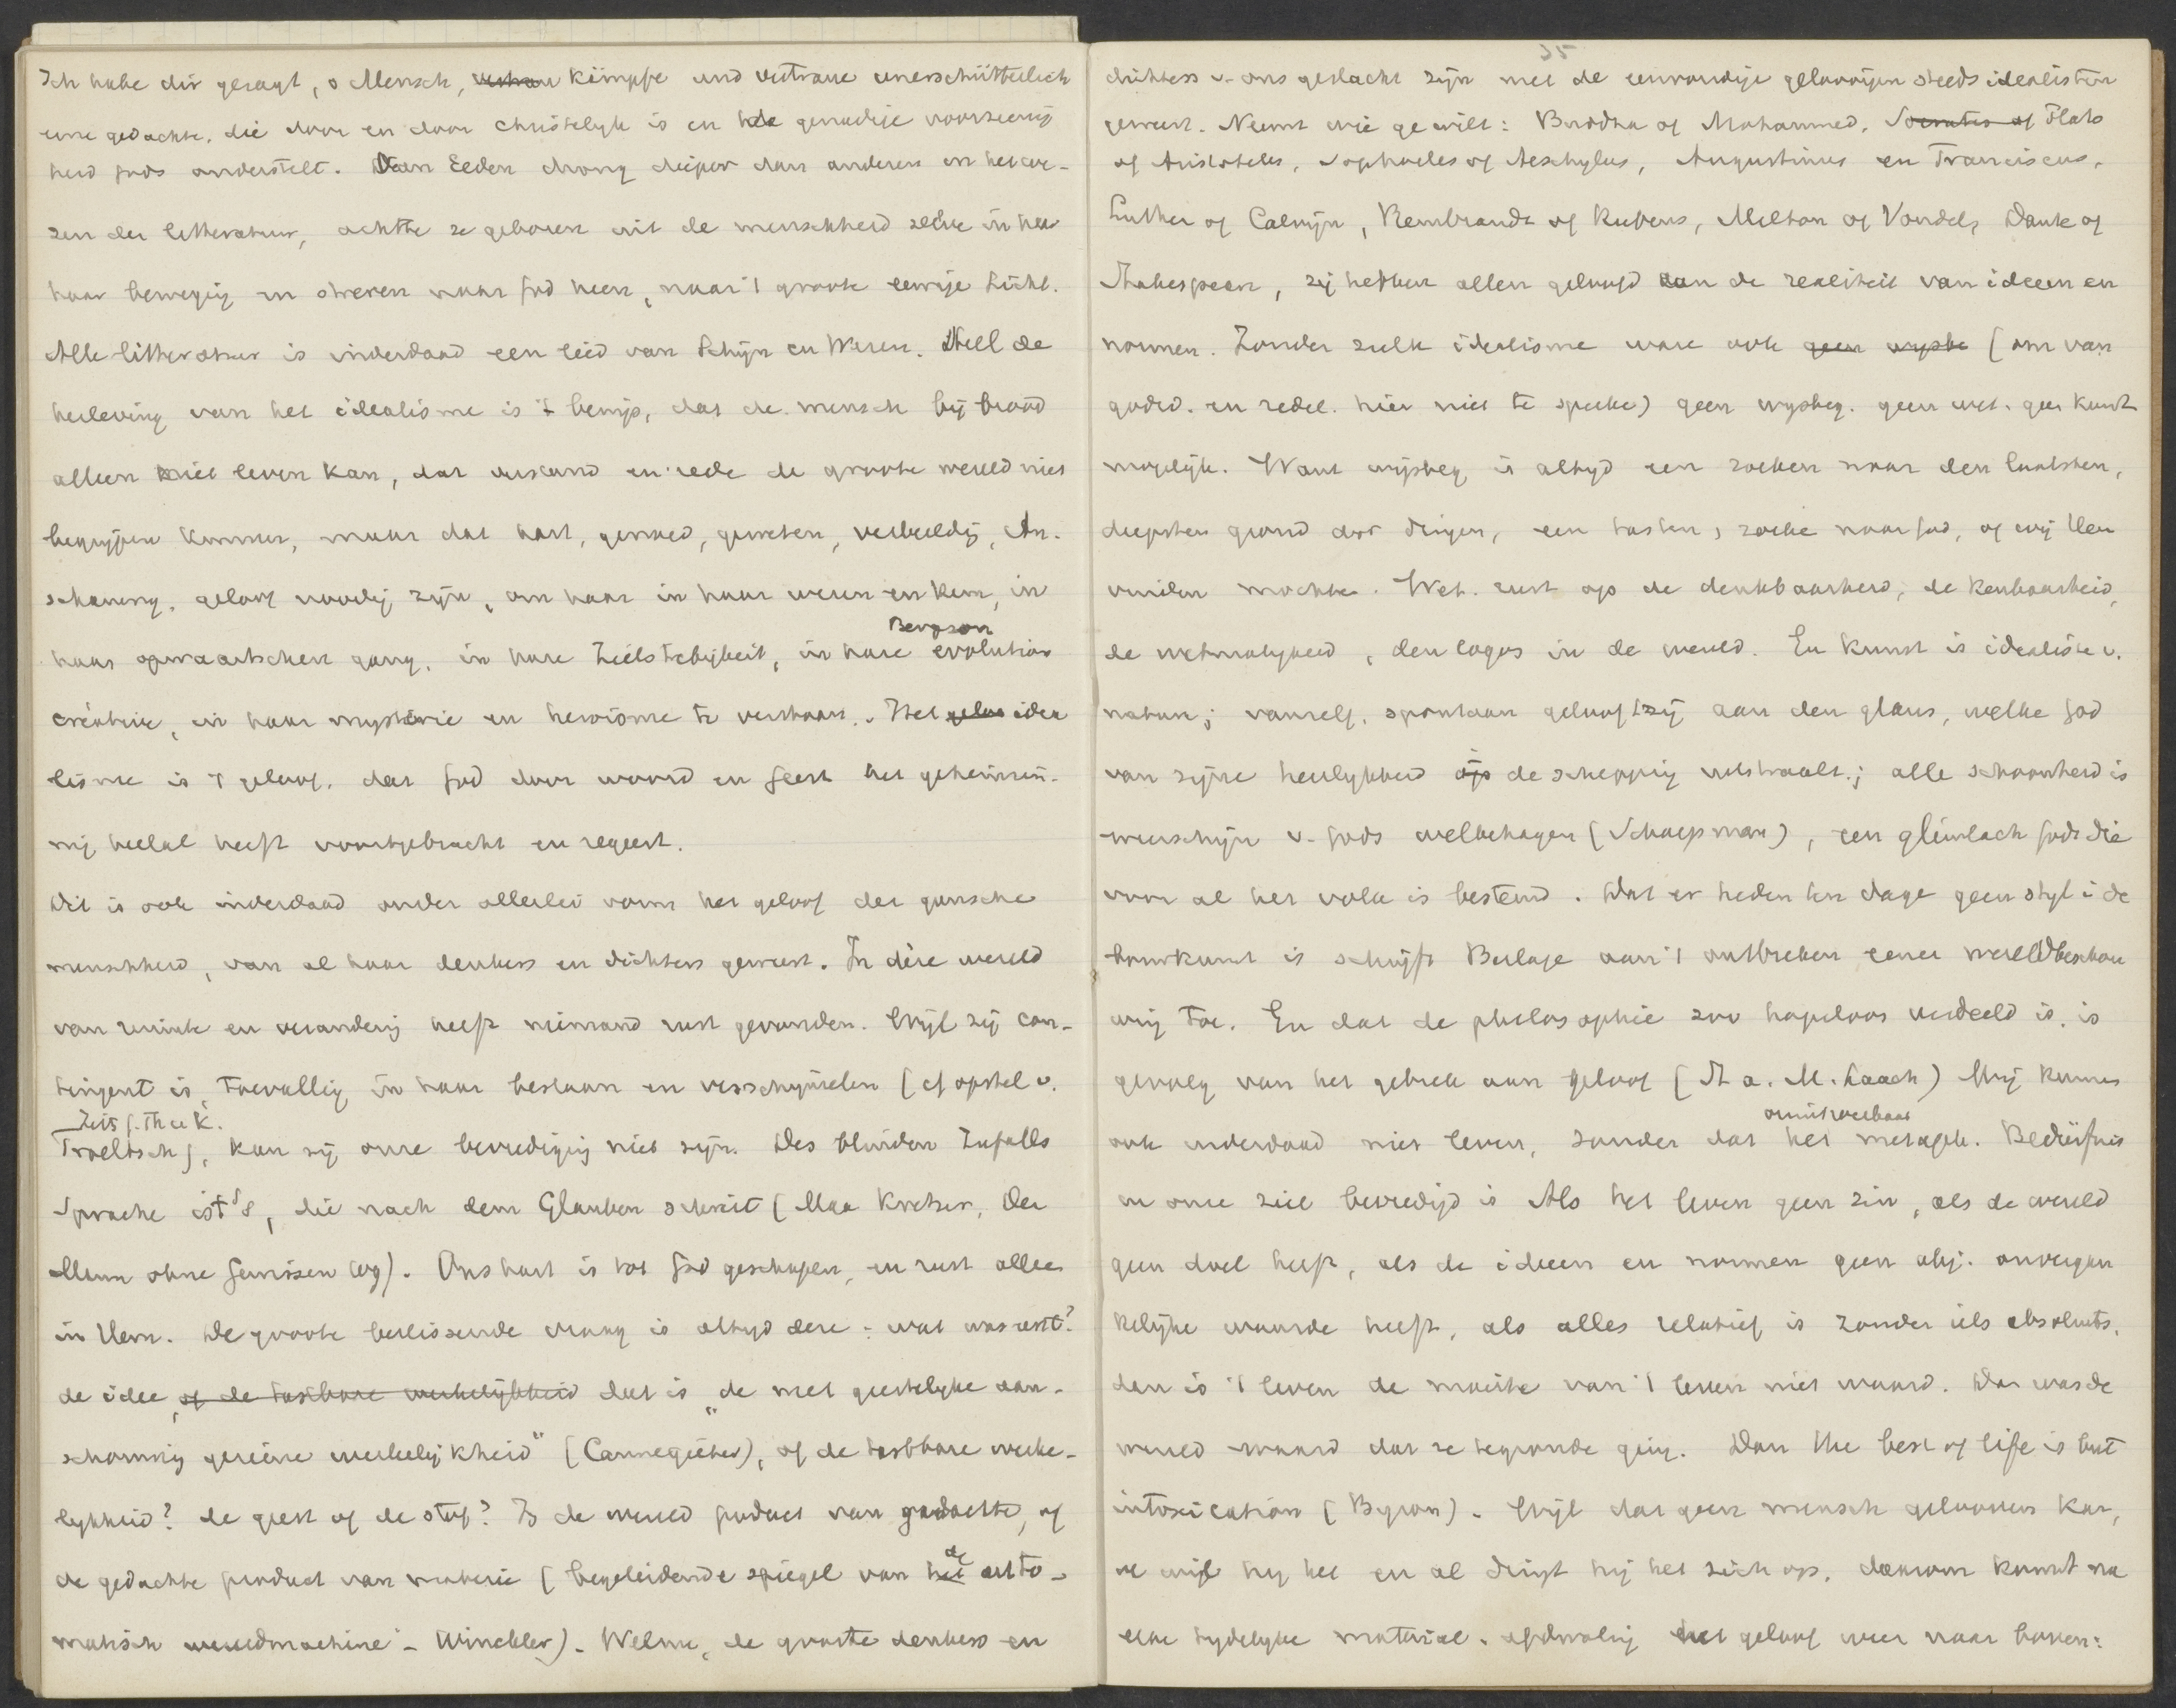 Ich habe dir gesagt, o Mensch, kämpfe und vertraue unerschütterlich
eene gedachte, die door en door christelijk is en de genadige voorzienig
heid Gods onderstelt. Van Eeden drong dieper dan anderen in het we-
zen der litteratuur, achtte ze geboren uit de menschheid zelve in
haar beweging en streven naar God heen, naar 't groote eeuwige Licht.
Alle litteratuur is inderdaad een lied van Schijn en Wezen. Heel de
herleving van het idealisme is 't bewijs, dat de mensch bij brood
alleen niet leven kan, dat verstand en rede de groote wereld niet
begrijpen kunnen, maar dat hart, gemoed, geweten, verbeeldg, An-
schauung, geloof noodig zijn, om haar in haar wezen en kern, in
haar opwaartschen gang, in hare Zielstrebigkeit, in hare evolution
Bergson
créatrice, in haar mysterie en heroisme te verstaan. Het geloo idea
lisme is 't geloof, dat God door woord en Geest het geheimzin-
nig heelal heeft voortgebracht en regeert.
Dit is ook inderdaad onder allerlei vorm het geloof der gansche
menschheid, van al haar denkers en dichters geweest. In deze wereld
van ruimte en verandering heeft niemand rust gevonden. Wijl zij con-
tingent is, toevallig in haar bestaan en verschijnselen (cf opstel v.
Zeits f. Th u K.
Troeltsch), kan zij onze bevrediging niet zijn. Des blinden Zufalls
Sprache ist's, die nach dem Glauben schreit (Max Kretzer, Der
Mann ohne Gewissen). Ons hart is tot God geschapen, en rust alleen
in Hem. De groote beslissende vraag is altijd deze: wat was eerst?
de idee, of de tastbare werkelijkheid dat is "de met geestelijke aan-
schouwing geziene werkelijkheid" (Cannegieter), of de tastbare werke-
lijkheid? de geest of de stof? Is de wereld product van gedachte, of
de gedachte product van materie (begeleidende spiegel van de auto-
matisch wereldmachine - Winckler). Welnu, de grootste denkers en
35
dichters v. ons geslacht zijn met de eenvoudige geloovigen steeds idealisten
geweest. Neemt wie ge wilt: Buddha of Mohammed, Socrates of Plato
of Aristoteles, Sophocles of Aeschylus, Augustinus en Franciscus,
Luther of Calvijn, Rembrandt of Rubens, Milton of Vondel, Dante of
Shakespeare, zij hebben allen geloofd aan de realiteit van ideeen en
normen. Zonder zulk idealisme ware ook geen wijsbe (om van
godsd. en zedel. hier niet te spreke) geen wijsbeg. geen wet. geen kunst
mogelijk. Want wijsbeg is altijd een zoeken naar den laatsten,
diepsten grond der dingen, een tasten, zoeke naar God, of wij Hem
vinden mochten. Wet. rust op de denkbaarheid, de kenbaarheid,
de wetmatigheid, den logos in de wereld. En kunst is idealiste v.
natuur; vanzelf, spontaan gelooft zij aan den glans, welke God
van zijne heerlijkheid op de schepping uitstraalt; alle schoonheid is
weerschijn v. Gods welbehagen (Schaepman), een glimlach Gods die
voor al het volk is bestemd. Dat er heden ten dage geen stijl i de
bouwkunst is schrijft Berlage aan 't ontbreken eener wereldbeschou
wing toe. En dat de philosophie zoo hopeloos verdeeld is, is
gevolg van het gebrek aan geloof (St a. M. Laach) Wij kunnen
ook inderdaad niet leven, zonder dat het metaph. Bedürfnis
onuitroeibaar
in onze ziel bevredigd is Als het leven geen zin, als de wereld
geen doel heeft, als de ideeen en normen geen obj. onvergan
kelijke waarde heeft, als alles relatief is zonder iets absoluuts,
dan is 't leven de moeite van 't leven niet waard. Dan was de
wereld waard dat ze te gronde ging. Dan the best of life is but
intoxication (Byron). Wijl dat geen mensch gelooven kan,
al wijst hij het en al dringt hij het zich op, daarom komt na
elke tijdelijke material. afdwaling het geloof weer naar boven: